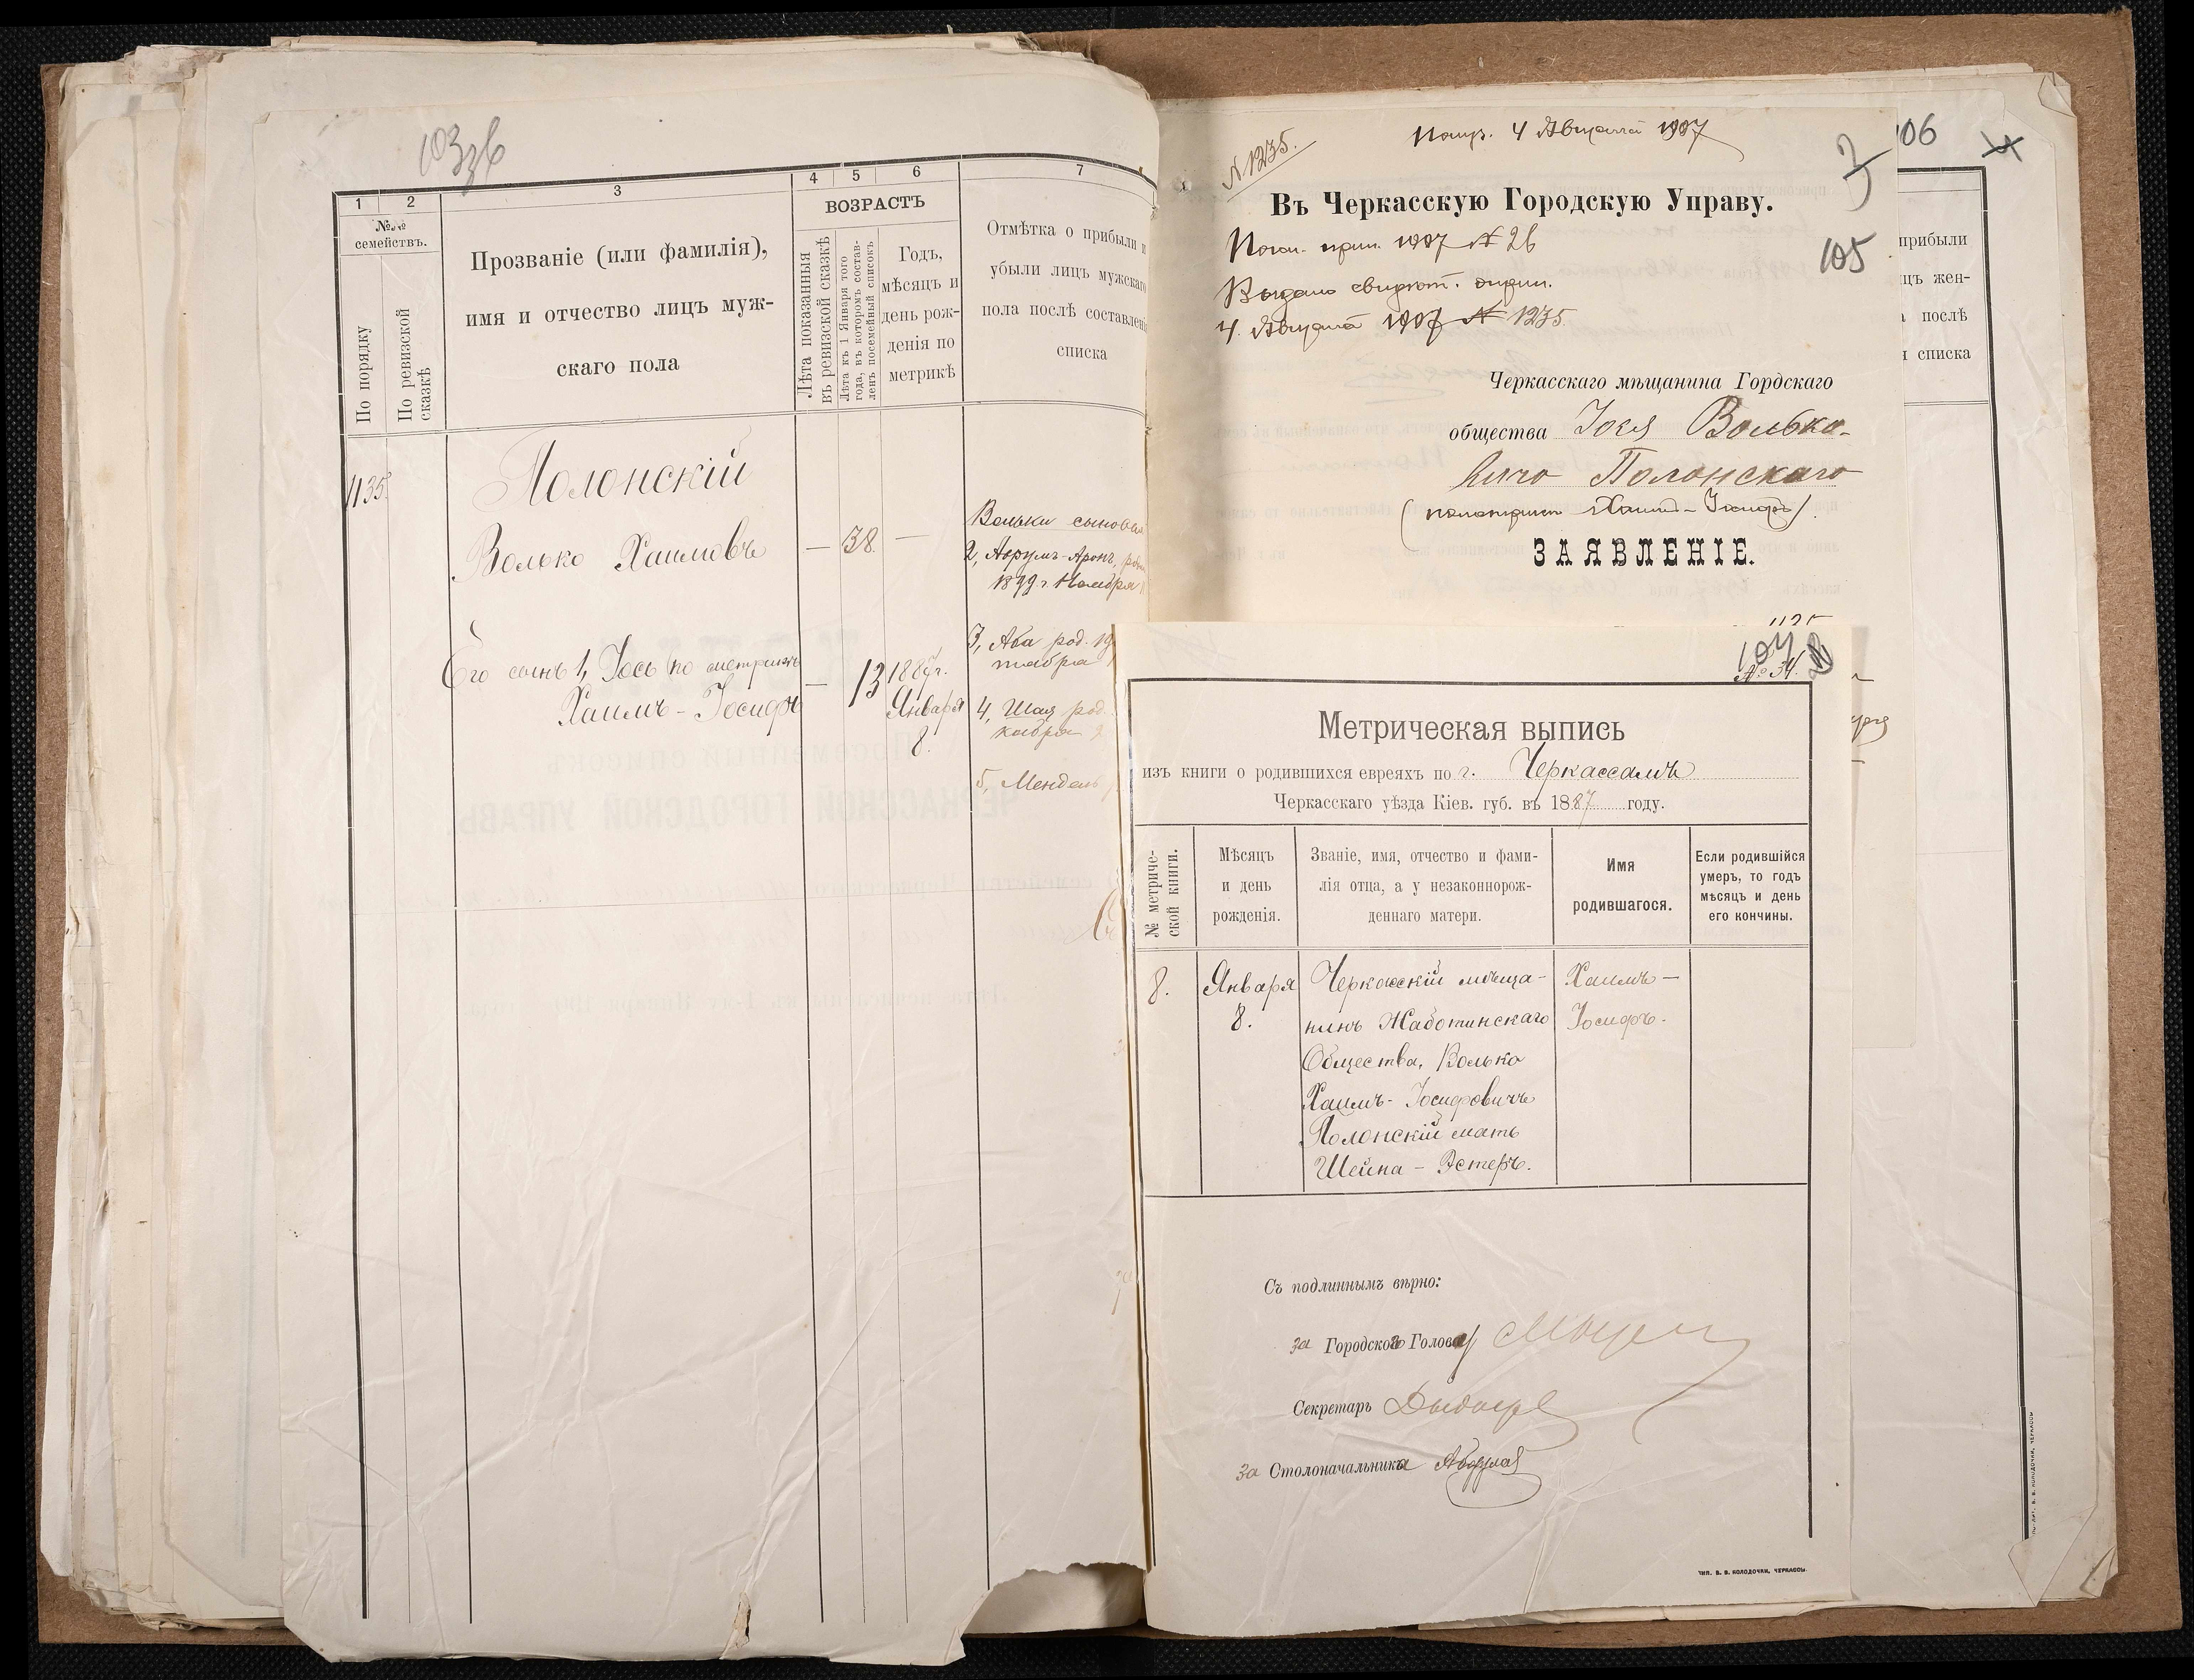 103 зв
1
2
3
4
5
6
7
№№ семействъ.
По порядку
По ревизской сказкѣ
Прозваніе (или фамилія),
имя и отчество лицъ муж-
скаго пола
ВОЗРАСТЪ
Лѣта показанныя
въ ревизской сказкѣ
Лѣта къ 1 Января того
года, въ которомъ состав-
ленъ посемейный списокъ
Годъ,
мѣсяцъ и
день рож-
денія по
метрикѣ
Отмѣтка о прибыли и
убыли лицъ мужскаго
пола послѣ составлені
списка
1135.
Полонскій
Волько Хаимовъ — 38. —
Его сынъ 1, Іось по метрикѣ
Хаимъ-Іосифъ — 13
1887г.
Января
8.
Вольки сыновья
2, Аврумъ-Аронъ,
1899 г. Ноября
3, Аба род. 19
тября
4, Шая род.
кабря
5, Мендель
N 1235.
4 Августа 1907
Въ Черкасскую Городскую Управу.
1907 N 26
Выдано свидѣт.
4 Августа 1907 N 1235.
105
Черкасскаго мѣщанина Гордскаго
общества Іося Волько-
вича Полонскаго
Хаимъ-Іосифъ).
ЗАЯВЛЕНІЕ.
106
прибыли
цъ жен-
послѣ
списка
104
№ 34.
Метрическая выпись
изъ книги о родившихся евреяхъ по г. Черкассамъ
Черкасскаго уѣзда Кіев. губ. въ 1887 году.
№ метриче-
ской книги.
Мѣсяцъ
и день
рожденія.
Званіе, имя, отчество и фами-
лія отца, а у незаконнорож-
деннаго матери.
Имя
родившагося.
Если родившійся
умеръ, то годъ
мѣсяцъ и день
его кончины.
8.
Января
8.
Черкасскій мѣща-
нинъ Жаботинскаго
Общества, Волько
Хаимъ-Іосифовичъ
Полонскій мать
Шейна-Эстеръ.
Хаимъ—
Іосифъ.
Съ подлиннымъ вѣрно:
за Городского Голову
Секретарь
за Столоначальника
ТИП. В. В. КОЛОДОЧКИ, ЧЕРКАССЫ.